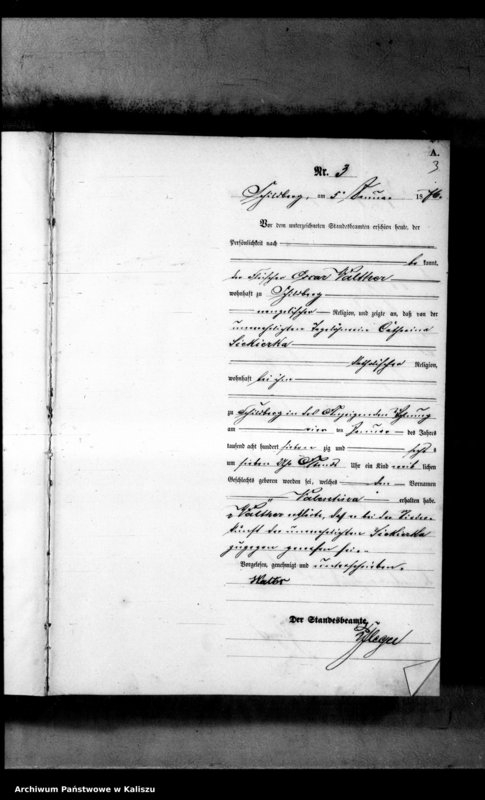 A.
3
Nr. 3
Schildberg, am 5ten Januar 1876.
Vor dem unterzeichneten Standesbeamten erschien heute, der
Persönlichkeit nach
be kannt,
der Tischler Oscar Walther
wohnhaft zu Schildberg
evangelischer Religion, und zeigte an, daß von der
unverehelichten Tagelöhnerin Catharina
Siekierka
katholischer Religion,
wohnhaft bei ihm
zu Schildberg in des Anzeigenden Wohnung
am vier ten Januar des Jahres
tausend acht hundert sieben zig und sechs
um sieben Uhr Abends Uhr ein Kind weib lichen
Geschlechts geboren worden sei, welches den Vornamen
Valentina erhalten habe.
Walther erklärte, daß er bei der Nieder
kunft der unverehelichten Siekierka
zugegen gewesen sei.
Vorgelesen, genehmigt und unterschrieben.
Der Standesbeamte.
Archiwum Państwowe w Kaliszu